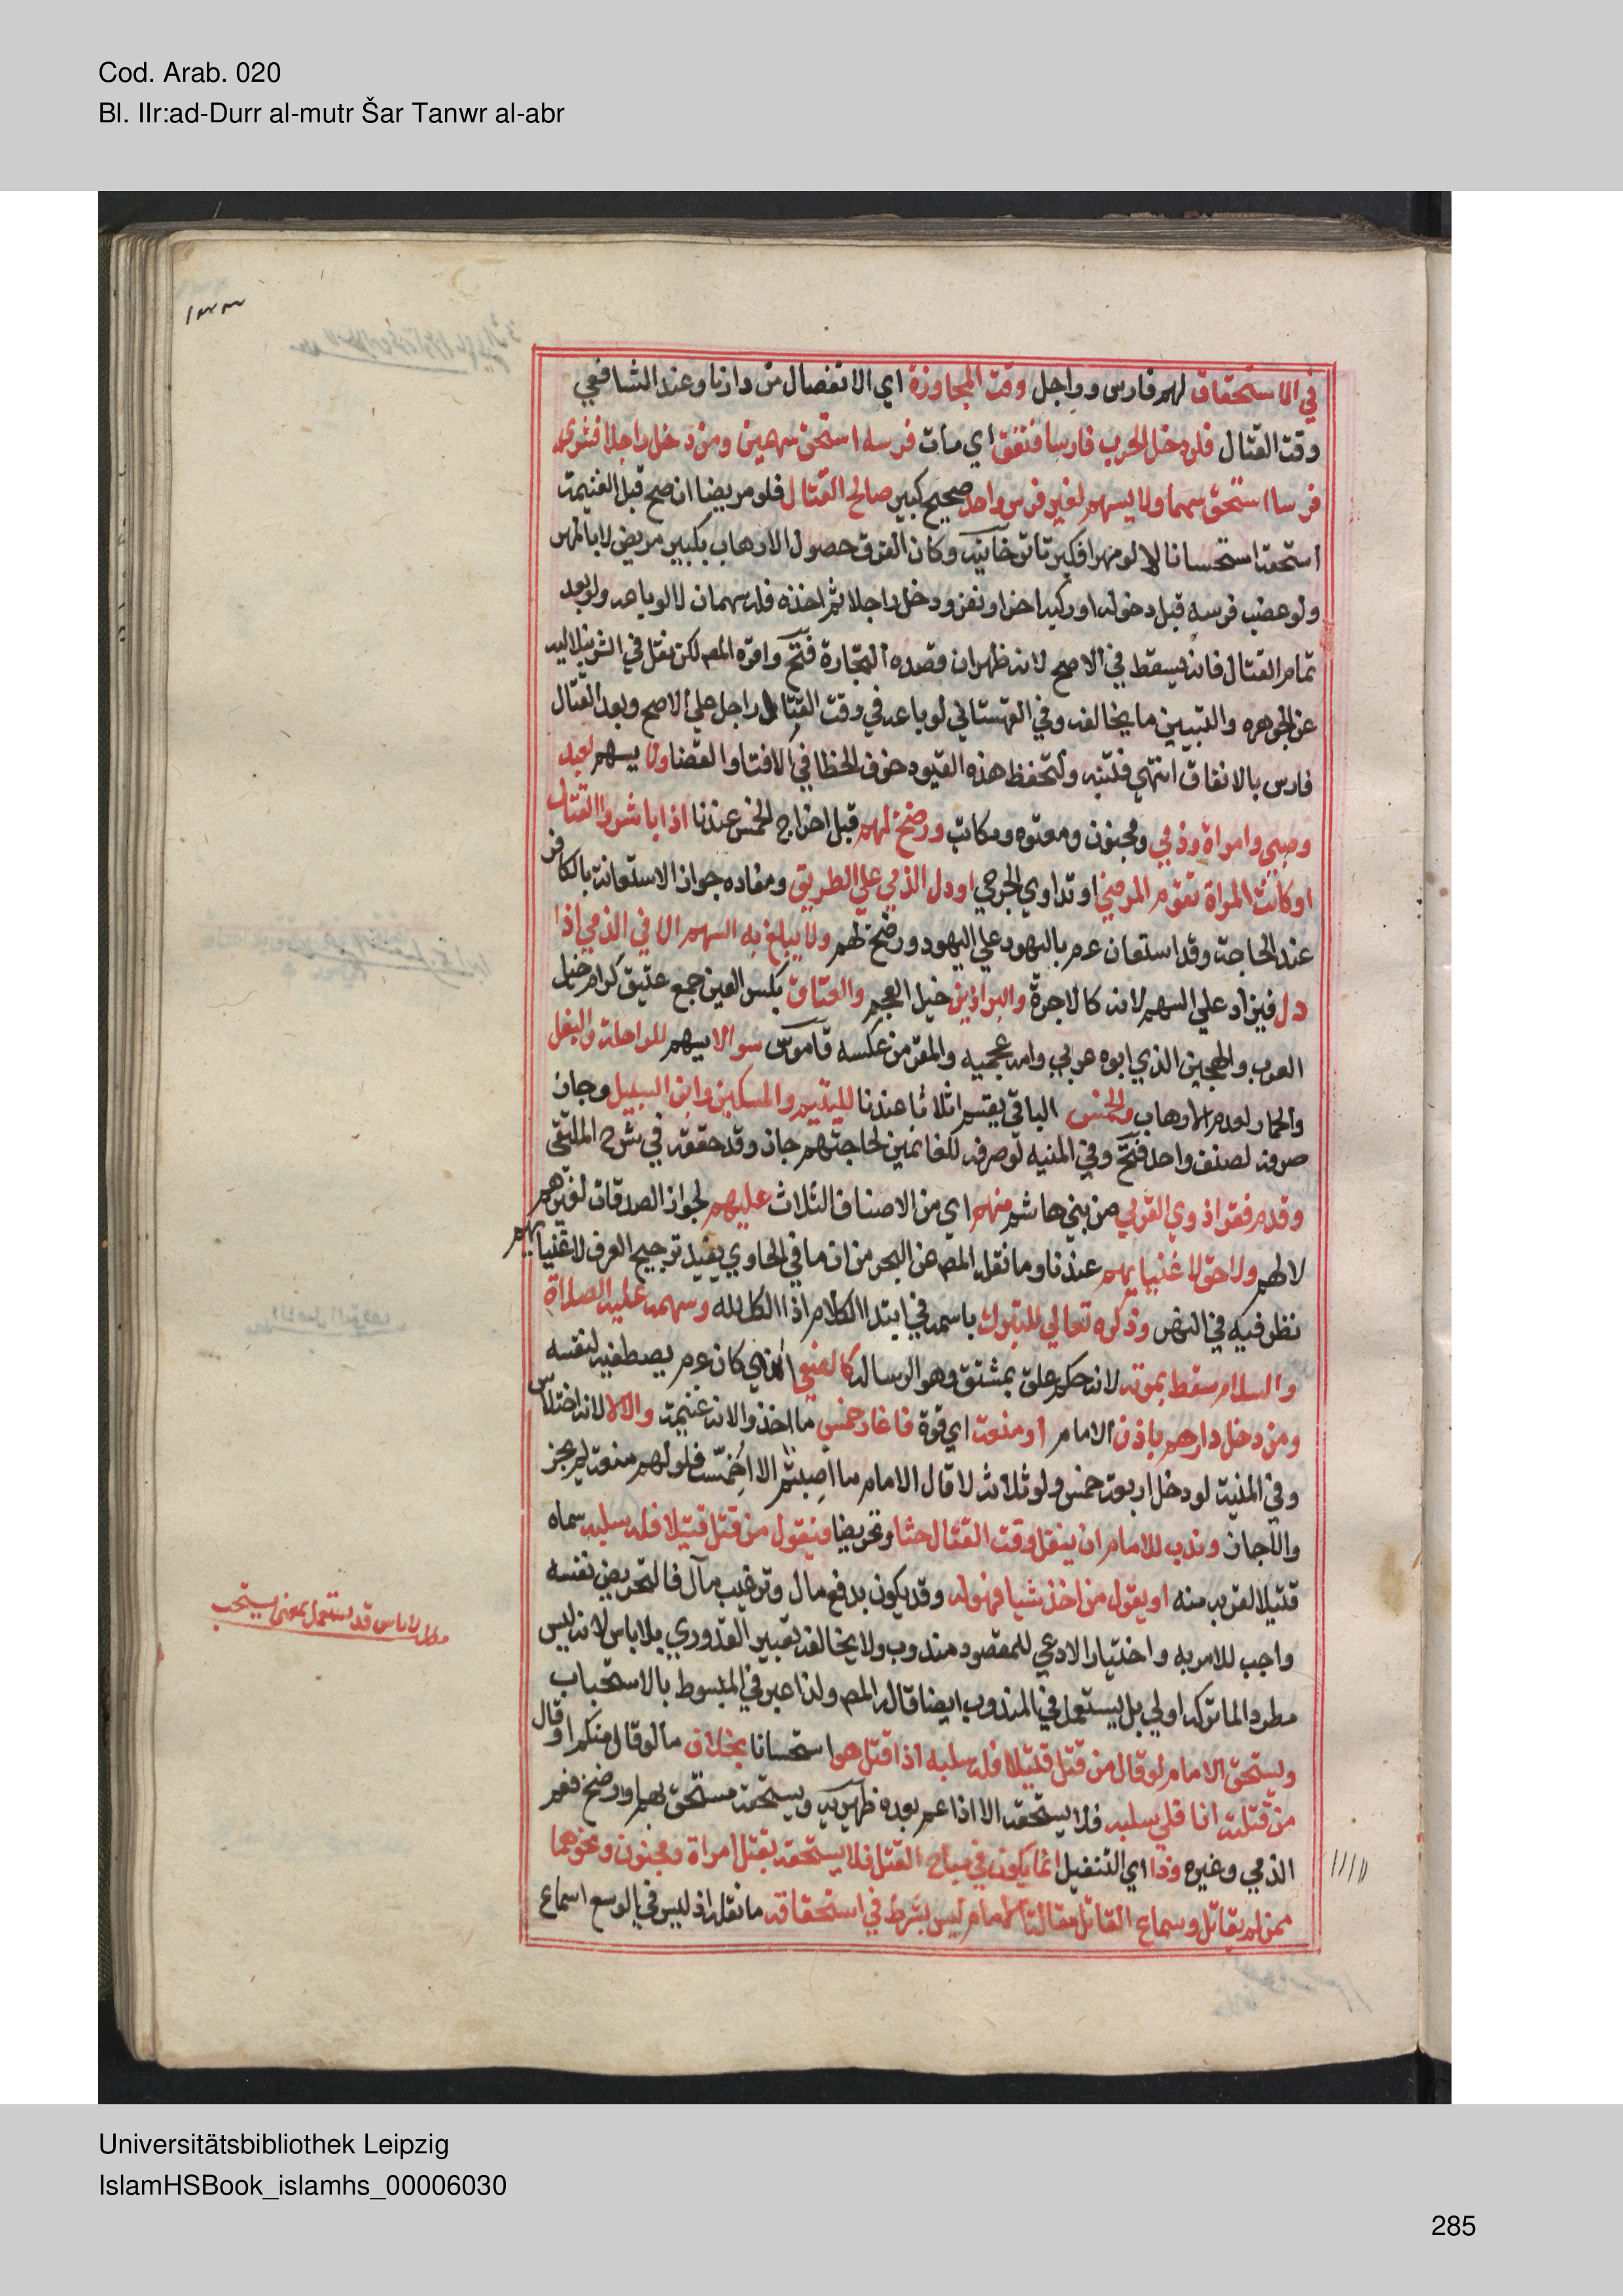 Cod. Arab. 020
Bl. IIr:ad-Durr al-mutr Šar Tanwr al-abr
١٣٣
في الاستحقاق لهم فارس وراجل وقت المجاوزة اي الانفصال من دارنا وعند الشافعي
وقت القتال فلو دخل الحرب فارسا فنفق اي مات فرسه استحق سهمين ومن دخل راجلا فشري
فرسا استحق سهما ولا يسهم لغير فرس واحد صحيح كبير صالح القتال فلو مريضا ان صح قبل الغنيمة
استحقه استحسانا لا لو مهرا فكبر تاترخانيه وكان الفرق حصول الارهاب بكبير مريض لا بالمهر
ولو غصب فرسه قبل دخوله او ركبه اخر او نفر ودخل راجلا ثم اخذه فله سهمان لا لو باعه ولو بعد
تمام القتال فانه يسقط في الاصح لانه ظهر ان قصده التجارة فتح واقره المص لكن نقل في الشرنبلاليه
عن الجوهره والتبيين ما يخالفه وفي القهستاني لو باعه في وقت القتال راجل علي الاصح وبعد القتال
فارس بالاتفاق انتهي فتنبه ولتحفظ هذه القيود خوف الخطا في الافتا والقضا ولا يسهم لعبد
وصبي وامراة وذمي ومجنون ومعتوه ومكاتب ورضخ لهم قبل اخراج الخمس عندنا اذا باشروا القتال
او كانت المراة تقوم المرضي او تداوي الجرحي او دل الذمي علي الطريق ومفاده جواز الاستعانة بالكافر
عند الحاجة وقد استعان عم باليهود علي اليهود ورضخ لهم ولا يبلغ به السهم الا في الذمي اذا
دل فيزاد علي السهم لانه كالاجرة والبراذين خيل العجم والعتاق بكسر العين جمع عتيق كرام خيل
العرب والهجين الذي ابوه عربي وامه عجميه والمقرف عكسه قاموس سوا لا يسهم للراحلة والبغل
والحمار لعدم الارهاب والخمس الباقي يقسم اثلاثا عندنا لليتيم والمسكين وابن السبيل وجاز
صرفه لصنف واحد فتح وفي المنيه لو صرفه للغانمين لحاجتهم جاز وقد حققته في شرح الملتقي
وقدم فقرا ذوي القربي من بني هاشم منهم اي من الاصناف الثلاث عليهم لجواز الصدقات لغيرهم
لا لهم ولا حق لاغنيايهم عندنا وما نقله المص عن البحر من ان ما في الحاوي يفيد ترجيح الصرف لاغنيايهم
نظر فيه في النهر وذكره تعالي للتبرك باسمه في ابتدا الكلام اذ الكل لله وسهمه عليه الصلاة
والسلام سقط بموته لانه حكم علق بمشتق وهو الرسالة كالصفي الذي كان عم يصطفيه لنفسه
ومن دخل دارهم باذن الامام او منعة اي قوة فاغار خمس ما اخذوا لانه غنيمة والا لا لانه اختلاس
وفي المنية لو دخل اربعة خمس ولو ثلاثة لا قال الامام ما اصبتم لا اخمّسه فلو لهم منعة لم يجز
والا جاز وندب للامام ان ينفل وقت القتال حثا وتحريضا فيقول من قتل قتيلا فله سلبه سماه
قتيلا لقربه منه او يقول من اخذ شيا فهو له وقد يكون بدفع مال وترغيب مآل فالتحريض نفسه
واجب للامر به واختيار الادعي للمقصود مندوب ولا يخالفه تعبير القدوري بلا باس لانه ليس
مطردا لما تركه اولي بل يستعمل في المندوب ايضا قاله المص ولذا عبر في المبسوط بالاستحباب
ويستحق الامام لو قال من قتل قتيلا فله سلبه اذا قتل هو استحسانا بخلاف ما لو قال منكم او قال
من قتلته انا فلي سلبه فلا يستحقه الا اذا عم بعده ظهيريه ويستحقه مستحق سهم او رضخ فعم
الذمي وغيره وذا اي التنفيل انما يكون في مباح القتل فلا يستحقه بقتل امراة ومجنون ونحوهما
ممن لم يقاتل وسماع القاتل مقالة الامام ليس بشرط في استحقاقه ما نفله اذ ليس في الوسع اسماع
مطلب لا باس قد يستعمل بمعني يستحب
Universitätsbibliothek Leipzig
IslamHSBook_islamhs_00006030
285